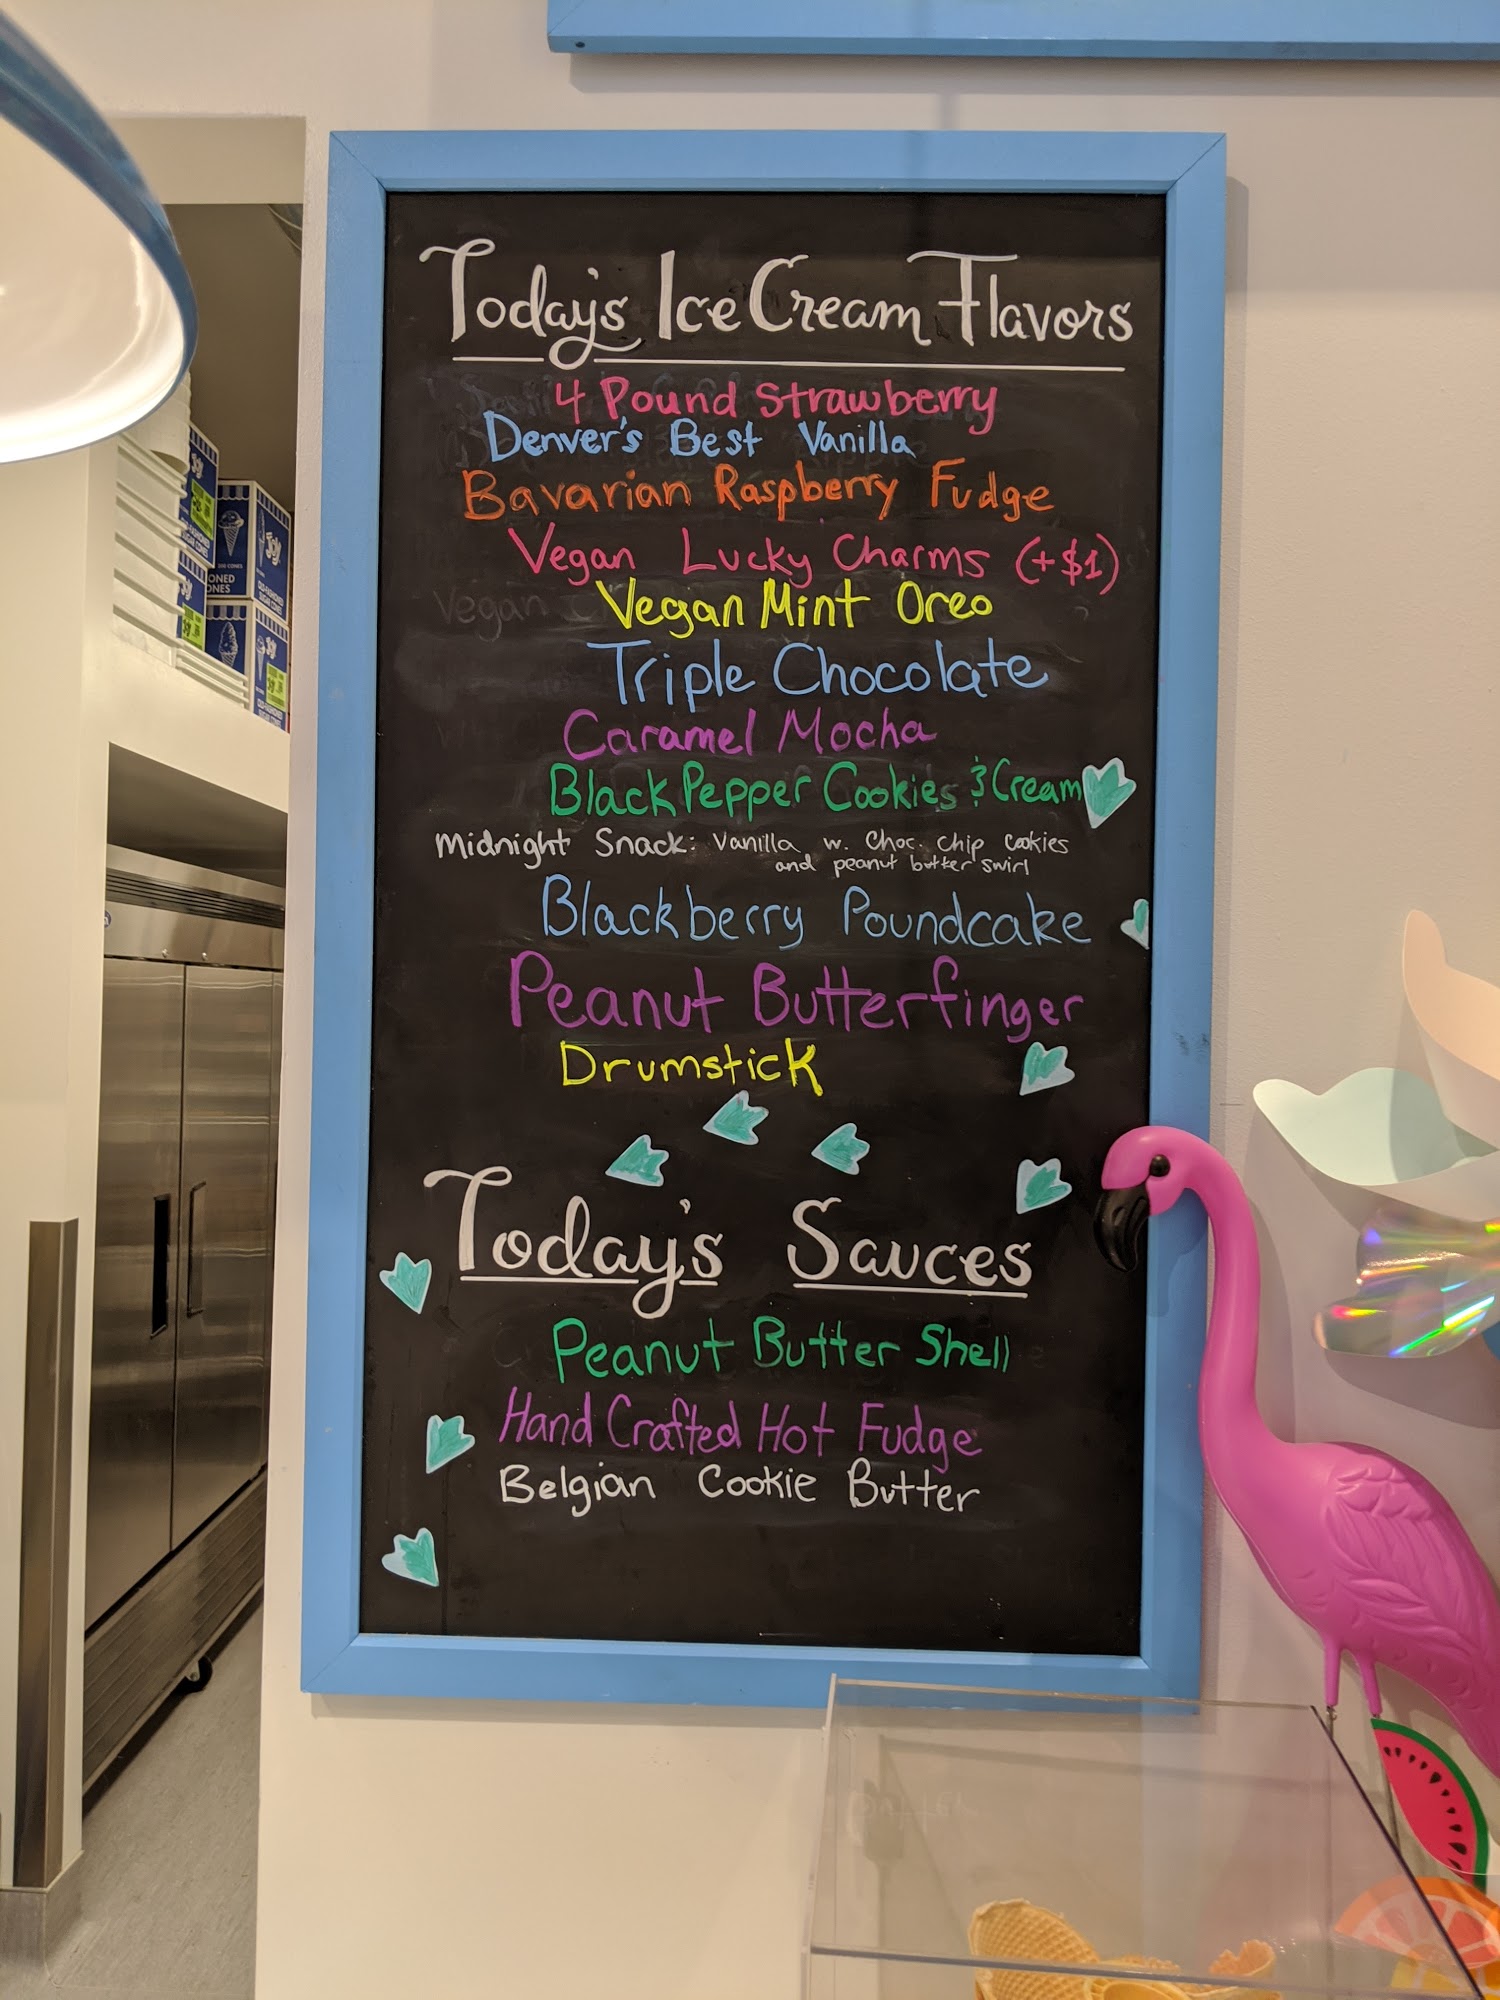 Today's Ice Cream Flavors
4 Pound Strawberry
Denver's Best Vanilla
Bavarian Raspberry Fudge
Vegan Lucky Charms (+$1)
Vegan
Vegan Mint Oreo
Triple Chocolate
Caramel Mocha
Black Pepper Cookies & Cream
Midnight Snack: Vanilla w. Choc. chip cookies
and peanut butter swirl
Blackberry Poundcake
Peanut Butterfinger
Drumstick
Today's Sauces
Peanut Butter Shell
Hand Crafted Hot Fudge
Belgian Cookie Butter
Joy
Joy
CONES
OLD-FASHIONED
SUGAR CONES